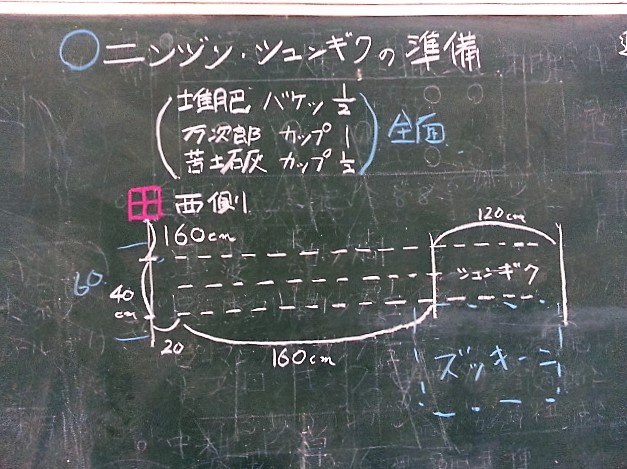 ○ニンジン・シュンギクの準備
堆肥 バケツ 1/2
万次郎 カップ 1
苦土石灰 カップ 1/2
全面
田 西側
160cm
120cm
シュンギク
60
40cm
20
160cm
ズッキーニ